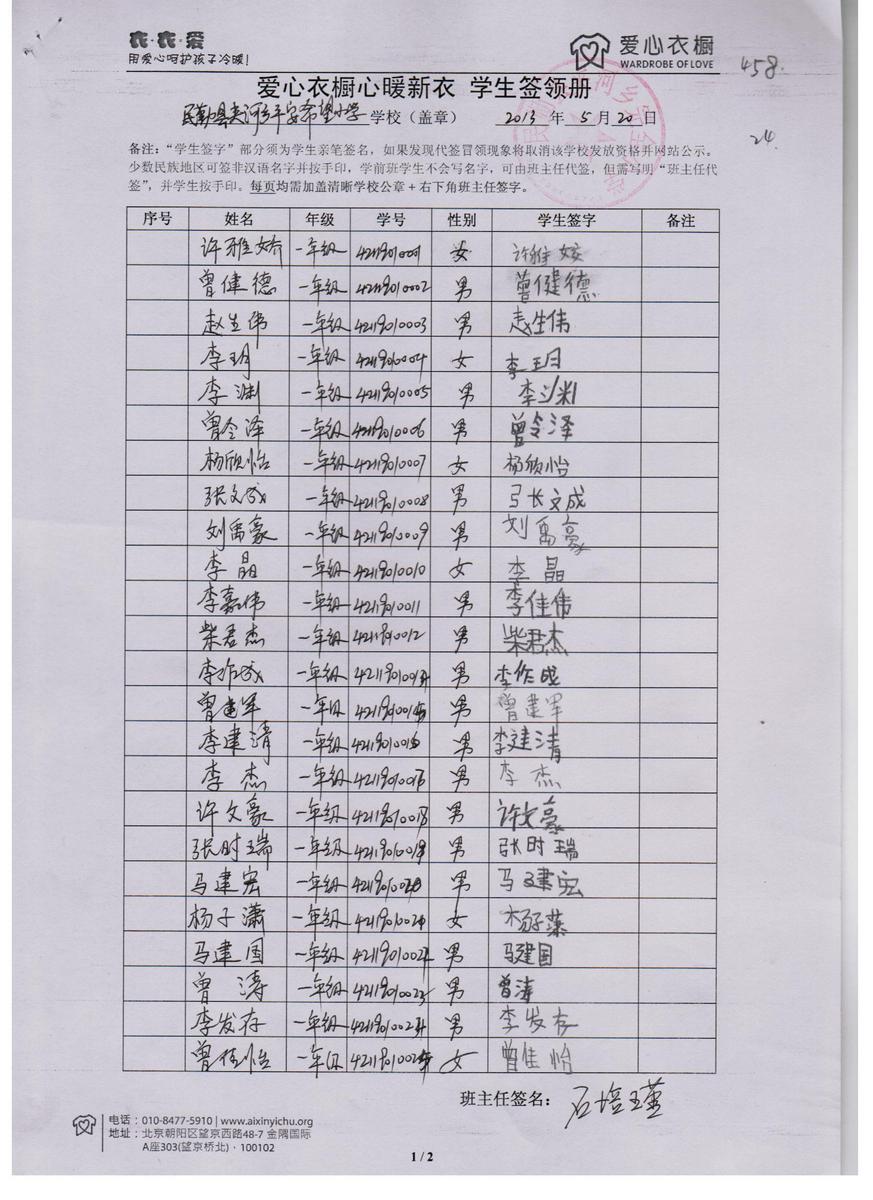 衣·衣·爱
用爱心呵护孩子冷暖!
爱心衣橱
WARDROBE OF LOVE
458
24
爱心衣橱心暖新衣 学生签领册
民勤县夹河乡平安希望小学 学校（盖章） 2013 年 5 月 20 日
备注：“学生签字”部分须为学生亲笔签名，如果发现代签冒领现象将取消该学校发放资格并网站公示。
少数民族地区可签非汉语名字并按手印，学前班学生不会写名字，可由班主任代签，但需写明“班主任代
签”，并学生按手印。每页均需加盖清晰学校公章+右下角班主任签字。
序号 姓名 年级 学号 性别 学生签字 备注
许雅娇 一年级 42119010001 女 许雅姣
曾健德 一年级 42119010002 男 曾健德
赵生伟 一年级 42119010003 男 赵生伟
李玥 一年级 42119010004 女 李玥
李渊 一年级 42119010005 男 李渊
曾令泽 一年级 42119010006 男 曾令泽
杨欣怡 一年级 42119010007 女 杨欣怡
张文成 一年级 42119010008 男 张文成
刘禹豪 一年级 42119010009 男 刘禹豪
李晶 一年级 42119010010 女 李晶
李嘉伟 一年级 42119010011 男 李佳伟
柴君杰 一年级 42119010012 男 柴君杰
李作成 一年级 男 李作成
曾建军 一年级 男 曾建军
李建清 一年级 男 李建清
李杰 一年级 男 李杰
许文豪 一年级 男 许文豪
张时瑞 一年级 男 张时瑞
马建宏 一年级 男 马建宏
杨子潇 一年级 女 杨子
马建国 一年级 男 马建国
曾涛 一年级 男 曾涛
李发存 一年级 男 李发存
曾佳怡 一年级 女 曾佳怡
班主任签名： 石培瑾
电话：010-8477-5910 | www.aixinyichu.org
地址：北京朝阳区望京西路48-7 金隅国际
A座303(望京桥北)·100102
1 / 2